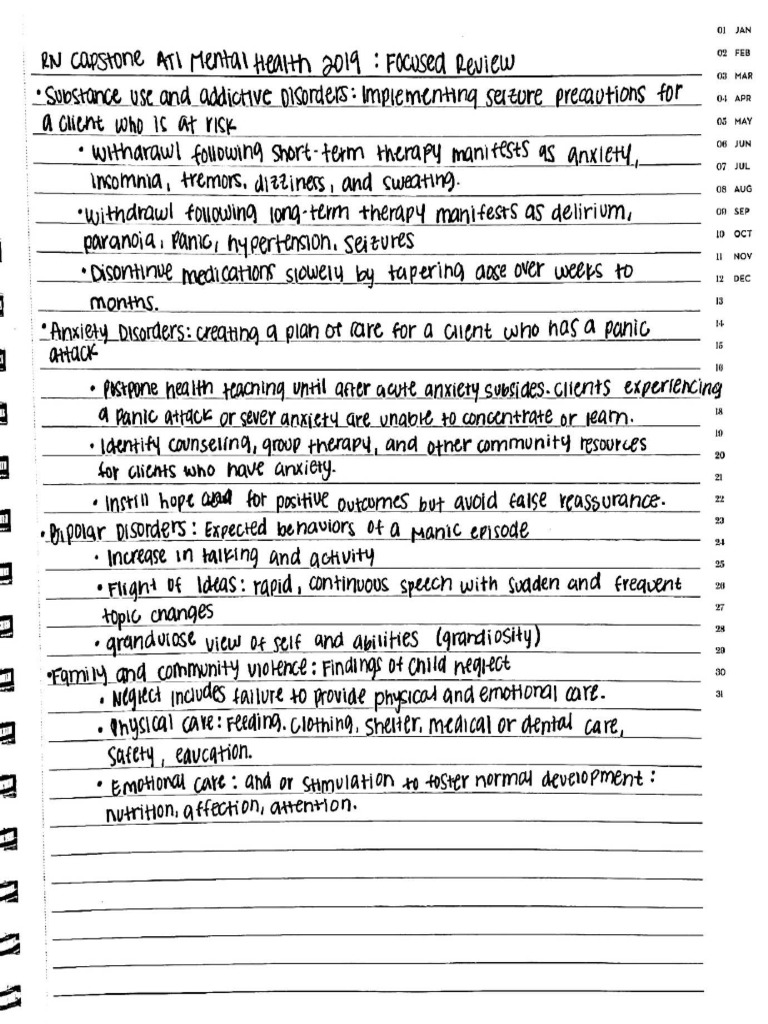 RN Capstone ATI Mental Health 2019 : Focused Review
• Substance use and addictive Disorders: Implementing seizure precautions for
a client who is at risk
• Witharawl following short-term therapy manifests as anxiety,
insomnia, tremors, dizziness, and sweating.
• Withdrawl following long-term therapy manifests as delirium,
paranoia, panic, hypertension, seizures
• Disontinue medications slowly by tapering dose over weeks to
months.
• Anxiety Disorders: creating a plan of care for a client who has a panic
attack
• Postpone health teaching until after acute anxiety subsides. Clients experiencing
a panic attack or sever anxiety are unable to concentrate or learn.
• Identify counseling, group therapy, and other community resources
for clients who have anxiety.
• Instill hope for positive outcomes but avoid false reassurance.
• Bipolar Disorders: Expected behaviors of a Manic episode
• Increase in talking and activity
• Flight of Ideas: rapid, continuous speech with sudden and frequent
topic changes
• grandulose view of self and abilities (grandiosity)
• Family and community violence: Findings of child neglect
• Neglect includes failure to provide physical and emotional care.
• Physical care: Feeding. Clothing, shelter, medical or dental care,
safety, education.
• Emotional care: and or stimulation to foster normal development:
nutrition, affection, attention.
01 JAN
02 FEB
03 MAR
04 APR
05 MAY
06 JUN
07 JUL
08 AUG
09 SEP
10 OCT
11 NOV
12 DEC
13
14
15
16
18
19
20
21
22
23
24
25
26
27
28
29
30
31